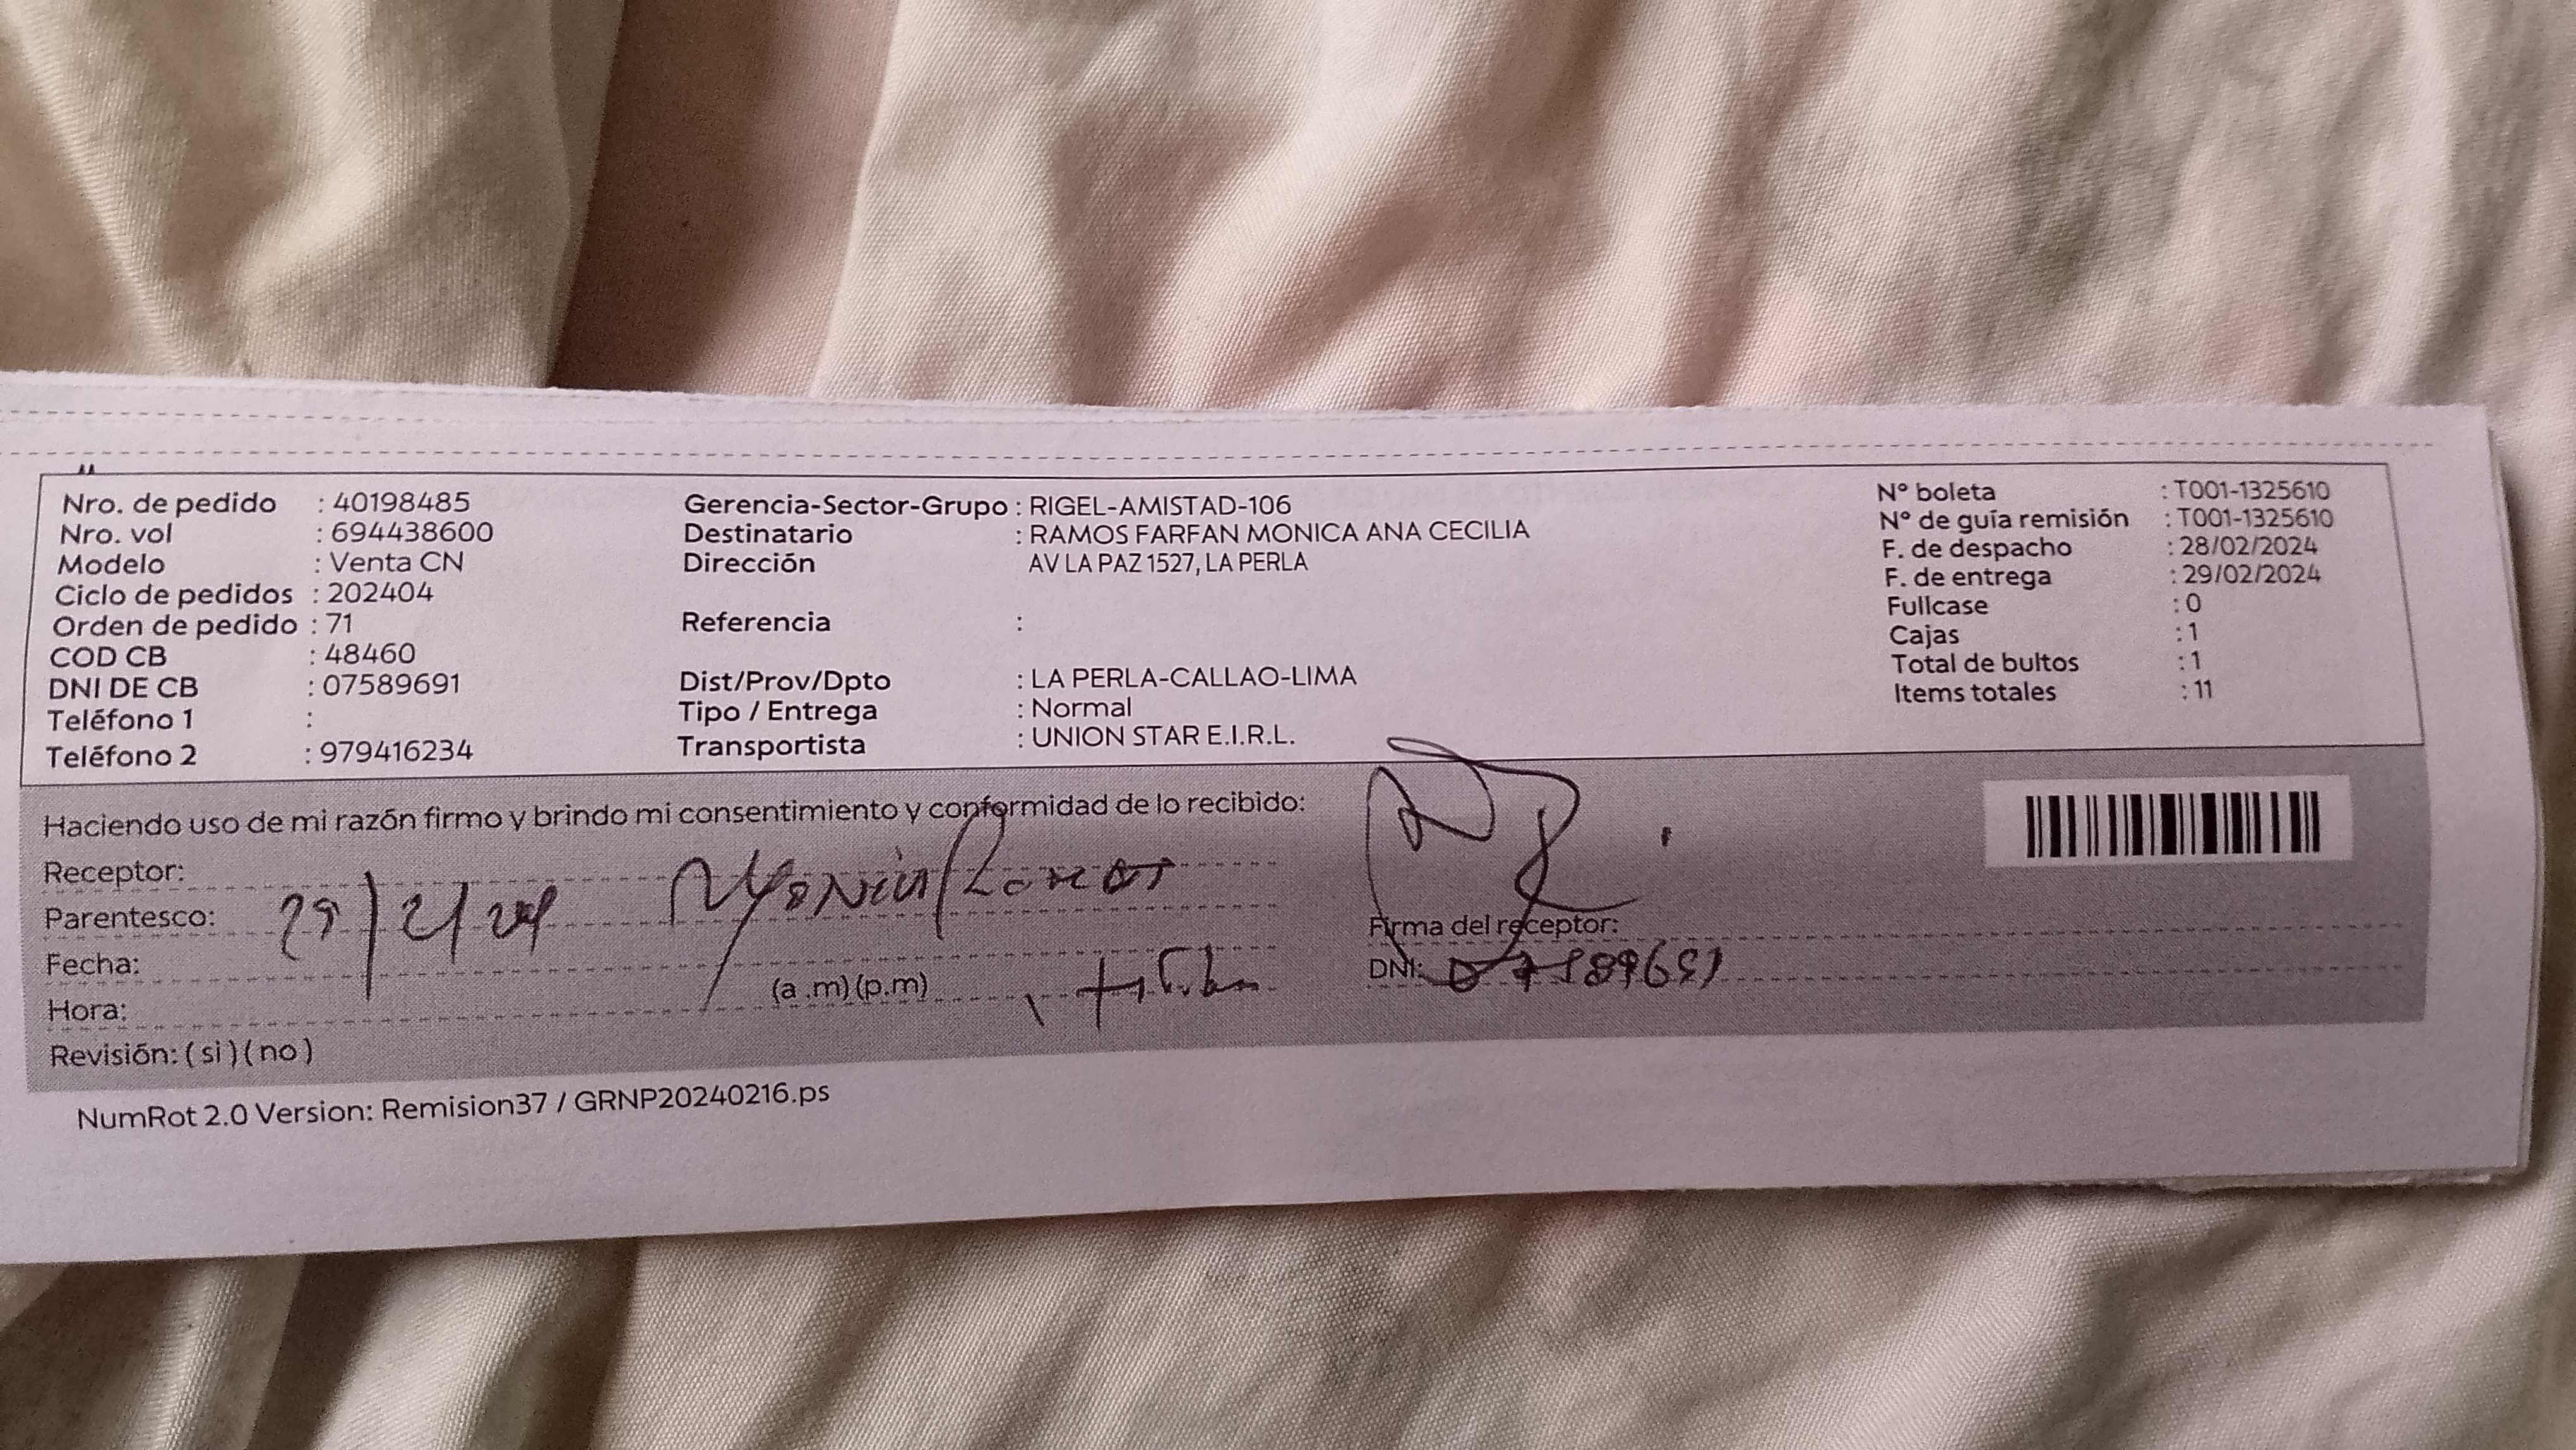 Nro. de pedido : 40198485
Nro. vol : 694438600
Modelo : Venta CN
Ciclo de pedidos : 202404
Orden de pedido : 71
COD CB : 48460
DNI DE CB : 07589691
Teléfono 1 :
Teléfono 2 : 979416234
Gerencia-Sector-Grupo : RIGEL-AMISTAD-106
Destinatario : RAMOS FARFAN MONICA ANA CECILIA
Dirección AV LA PAZ 1527, LA PERLA
Referencia :
Dist/Prov/Dpto : LA PERLA-CALLAO-LIMA
Tipo / Entrega : Normal
Transportista : UNION STAR E.I.R.L.
N° boleta : T001-1325610
N° de guía remisión : T001-1325610
F. de despacho : 28/02/2024
F. de entrega : 29/02/2024
Fullcase : 0
Cajas : 1
Total de bultos : 1
Items totales : 11
Haciendo uso de mi razón firmo y brindo mi consentimiento y conformidad de lo recibido:
Receptor:
Parentesco: 29/2/24 Monica Ramos
Fecha:
Hora: (a .m) (p.m)
Revisión: ( si ) ( no )
Firma del receptor:
DNI: 07589691
NumRot 2.0 Version: Remision37 / GRNP20240216.ps